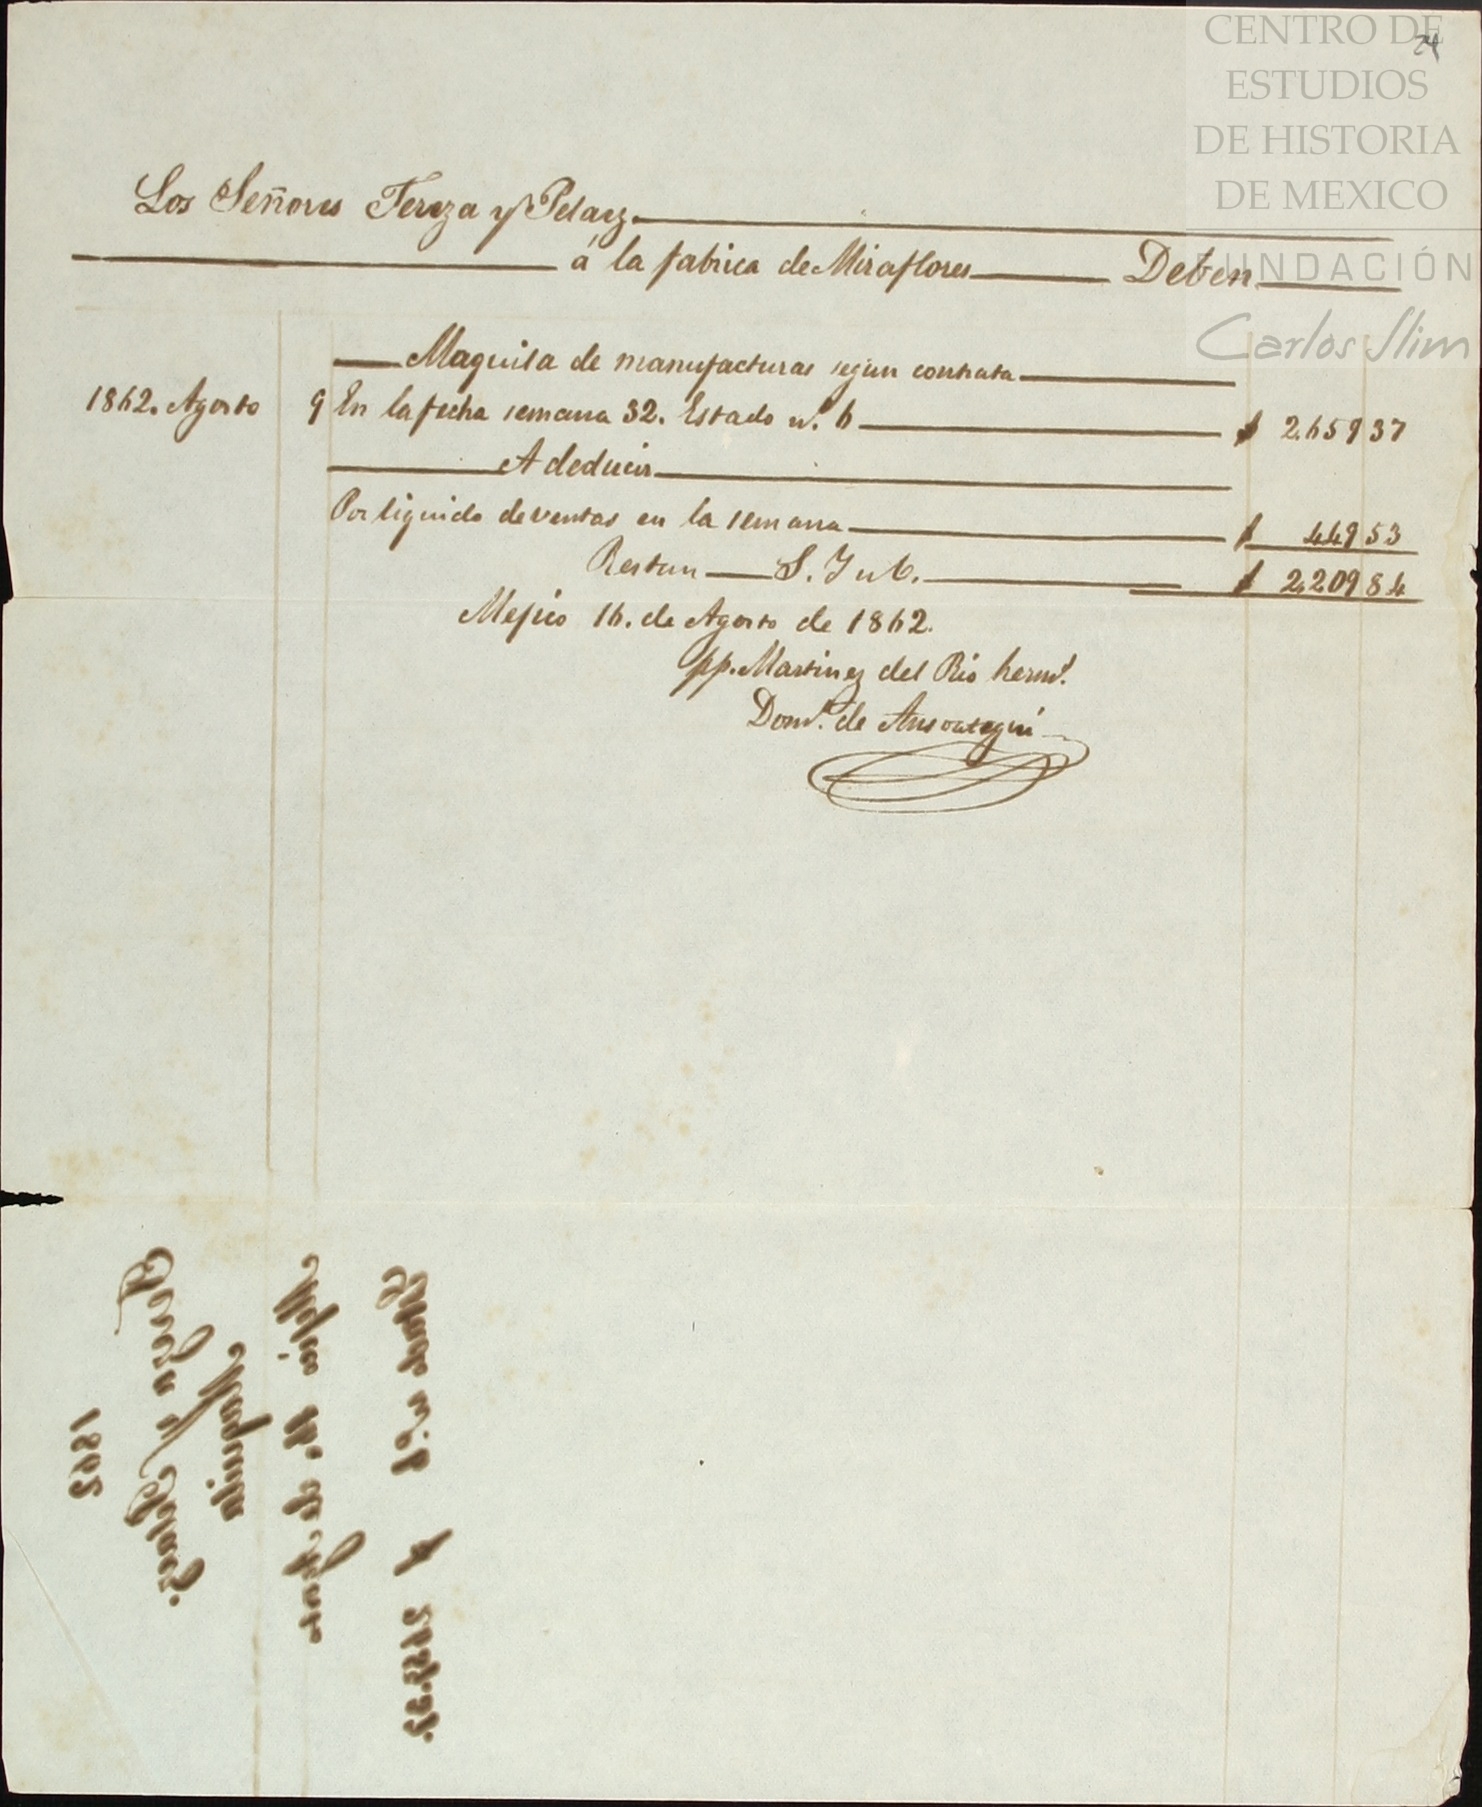 24
CENTRO DE
ESTUDIOS
DE HISTORIA
DE MEXICO
FUNDACIÓN
Carlos Slim
Los Señores Tereza y Pelaez
á la fabrica de Miraflores Deben
Maquila de manufacturas segun contrata
1862. Agosto 9 En la fecha semana 32. Estado nº. 6 $ 2.659 37
A deducir
Por liquido de ventas en la semana $ 449 53
Restan S. Y u O. $ 2,209 84
Mejico 16. de Agosto de 1862.
pp. Martinez del Rio hermº.
Domº. de Ansoategui
1862
Maquila
Mejico 16. de